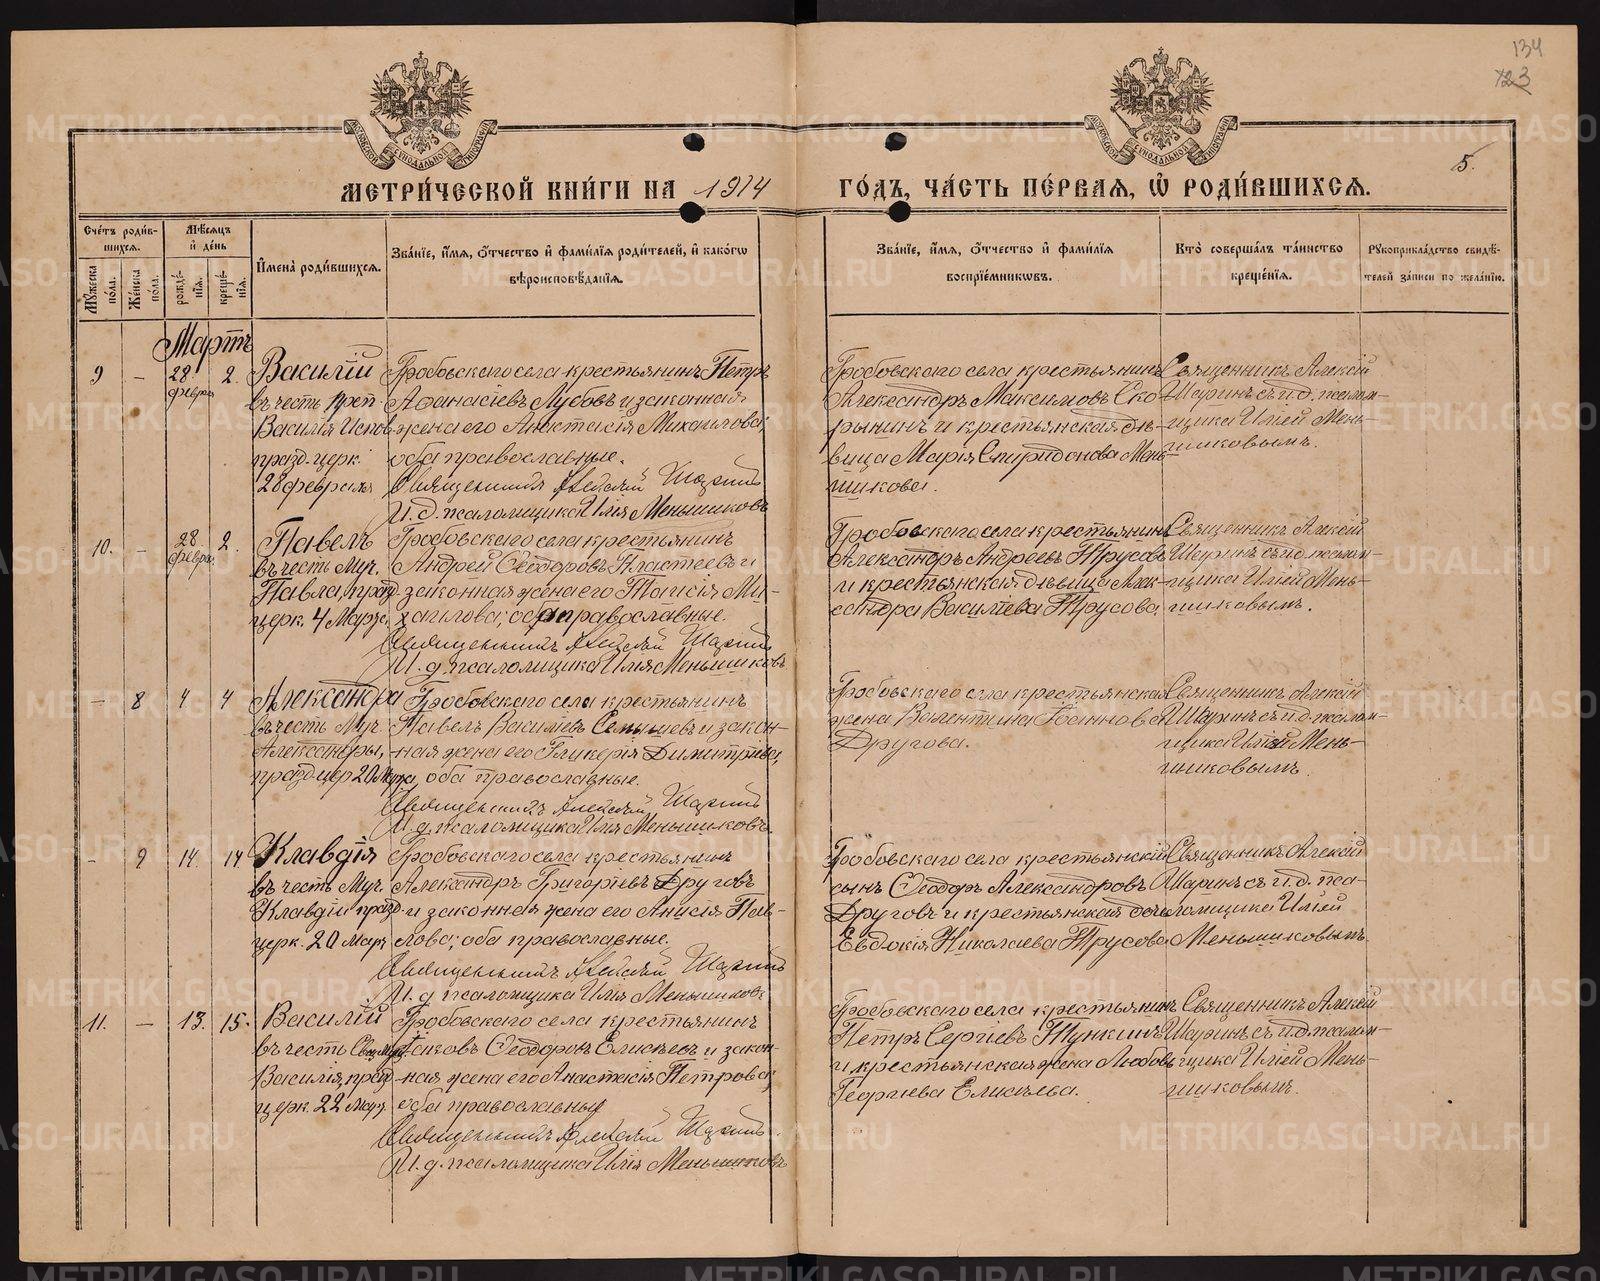 134
123
5.
МОСКОВСКОЙ СѴНОДАЛЬНОЙ ТИПОГРАФІИ
МОСКОВСКОЙ СѴНОДАЛЬНОЙ ТИПОГРАФІИ
МЕТРИ́ЧЕСКОЙ КНИ́ГИ НА 1914 ГО́ДЪ, ЧА́СТЬ ПЕ́РВАЯ, Ѡ҆ РОДИ́ВШИХСЯ.
Сче́тъ роди́в-
шихся.
Мꙋжеска
по́ла.
Же́нска
по́ла.
Мѣ́сяцъ
и҆ де́нь
рожде́-
нїѧ.
креще́-
нїѧ.
И҆мена̀ роди́вшихся.
Зва́нїе, и҆́мя, ѻ҆́тчество и҆ фами́лїя роди́телей, и҆ како́гѡ
вѣроисповѣ́данїя.
Зва́нїе, и҆́мя, ѻ҆́тчество и҆ фами́лїя
воспрїе́мникѡвъ.
Кто̀ соверша́лъ та́инство
креще́нїя.
Рꙋкоприкла́дство свидѣ́-
телей за́писи по жела́нїю.
Мартъ
9 — 28 2.
февраля
Василій
въ честь преп.
Василія Испов.
празд. церк.
28 февраля
Гробовскаго села крестьянинъ Петръ
Аѳанасіевъ Лубовъ и законная
жена его Анастасія Михаилова;
оба православные.
Священникъ Алексій Шаринъ
И. д. псаломщика Илія Меньшиковъ
Гробовскаго села крестьянинъ
Александръ Максимовъ Ско-
рынинъ и крестьянская дѣ-
вица Марія Спиридонова Мень-
шикова.
Священникъ Алексій
Шаринъ съ и. д. псалом-
щика Иліей Мень-
шиковымъ.
10. — 28 2.
февраля
Павелъ
въ честь Муч.
Павла, празд.
церк. 4 Марта.
Гробовскаго села крестьянинъ
Андрей Ѳеодоровъ Пластеевъ и
законная жена его Таисія Ми-
хаилова; оба православные.
Священникъ Алексій Шаринъ
И. д. псаломщика Илія Меньшиковъ
Гробовскаго села крестьянинъ
Александръ Андреевъ Трусовъ
и крестьянская дѣвица Алек-
сандра Василіева Трусова.
Священникъ Алексій
Шаринъ съ и. д. псалом-
щика Иліей Мень-
шиковымъ.
— 8 4 4
Александра
въ честь Муч.
Александры,
празд. цер. 20 Марта
Гробовскаго села крестьянинъ
Павелъ Василіевъ и закон-
ная жена его Гликерія Димитріева,
оба православные.
Священникъ Алексій Шаринъ
И. д. псаломщика Илія Меньшиковъ
Гробовскаго села крестьянская
жена Валентина Іоаннова
Другова.
Священникъ Алексій
Шаринъ съ и. д. псалом-
щика Иліей Мень-
шиковымъ.
- 9 14 14
Клавдія
въ честь Муч.
Клавдіи празд.
церк. 20 Март.
Гробовскаго села крестьянинъ
Александръ Григоріевъ Друговъ
и законная жена его Анисія Пав-
лова; оба православные.
Священникъ Алексій Шаринъ
И. д. псаломщика Илія Меньшиковъ
Гробовскаго села крестьянскій
сынъ Ѳеодоръ Александровъ
Друговъ и крестьянская дочь
Евдокія Николаева Трусова
Священникъ Алексій
Шаринъ съ и. д. пса-
ломщика Иліей
Меньшиковымъ.
11. — 13. 15.
Василій
въ честь Свщ. муч.
Василія, празд.
церк. 22 Март.
Гробовскаго села крестьянинъ
Іаковъ Ѳеодоровъ Елисѣевъ и закон-
ная жена его Анастасія Петрова;
оба православные
Священникъ Алексій Шаринъ
И. д. псаломщика Илія Меньшиковъ
Гробовскаго села крестьянинъ
Петръ Сергіевъ Тункинъ
и крестьянская жена Любовь
Георгіева Елисѣева.
Священникъ Алексій
Шаринъ съ и. д. псалом-
щика Иліей Мень-
шиковымъ.
METRIKI.GASO-URAL.RU